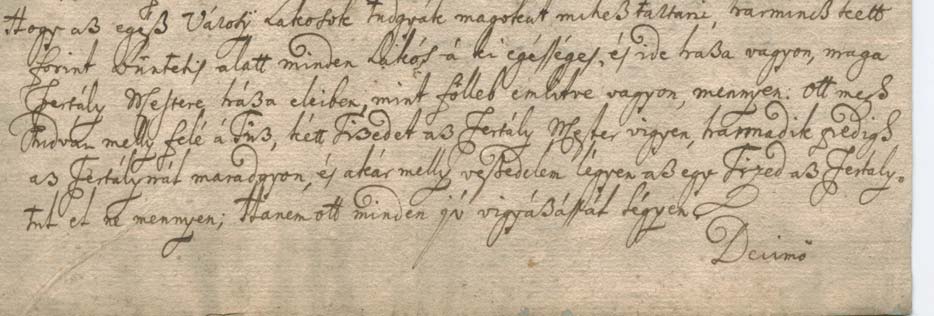 Hogy aß egeß Városÿ Lakosok tudgyák magokat miheß tartani, harmincß kett
forint büntetis alatt minden Lakós á ki egésséges, és ide haßa vagyon, maga
Fertály Mestere háßa eleiben, mint fölleb emlitve vagyon, mennyen: Ott megh
tudván melly felé á Tüß, kétt Tizedet aß Fertály Mester vigyen, harmadik pedigh
aß Fertálynál maradgyon, és akár melly veßedelem légyen aß egy Tized aß Fertály-
tul el ne mennyen; Hanem ott minden jó vigyáßását légyen.
Decimo